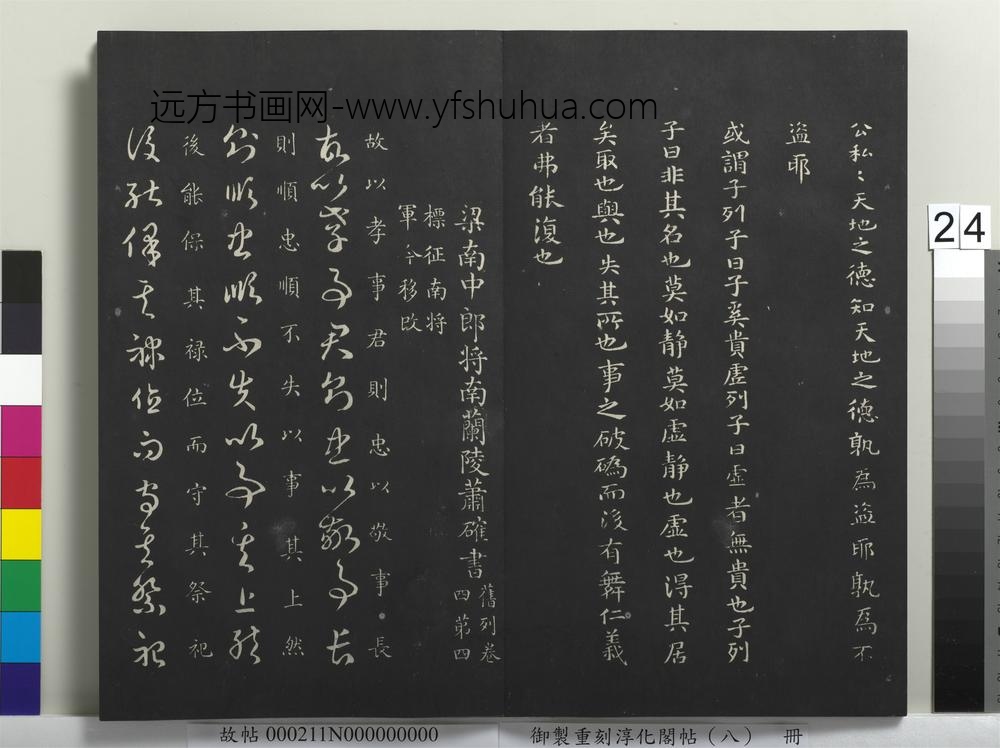 远方书画网-www.yfshuhua.com
公私々天地之德知天地之德孰為盜耶孰為不
盜耶
或謂子列子曰子奚貴虛列子曰虛者無貴也子列
子曰非其名也莫如静莫如虛静也虛也淂其居
矣取也與也失其所也事之破碼而淩有舞仁義
者弗能復也
梁南中郎将南蘭陵蕭確書
舊列卷
四第四
標征南将
軍今移改
故以孝事君則忠以敬事長
故以孝事君則忠以敬事長
則順忠順不失以事其上然
則順忠順不失以事其上然
後能保其禄位而守其祭祀
後能保其禄位而守其祭祀
24
故帖000211N000000000
御製重刻淳化閣帖（八） 冊